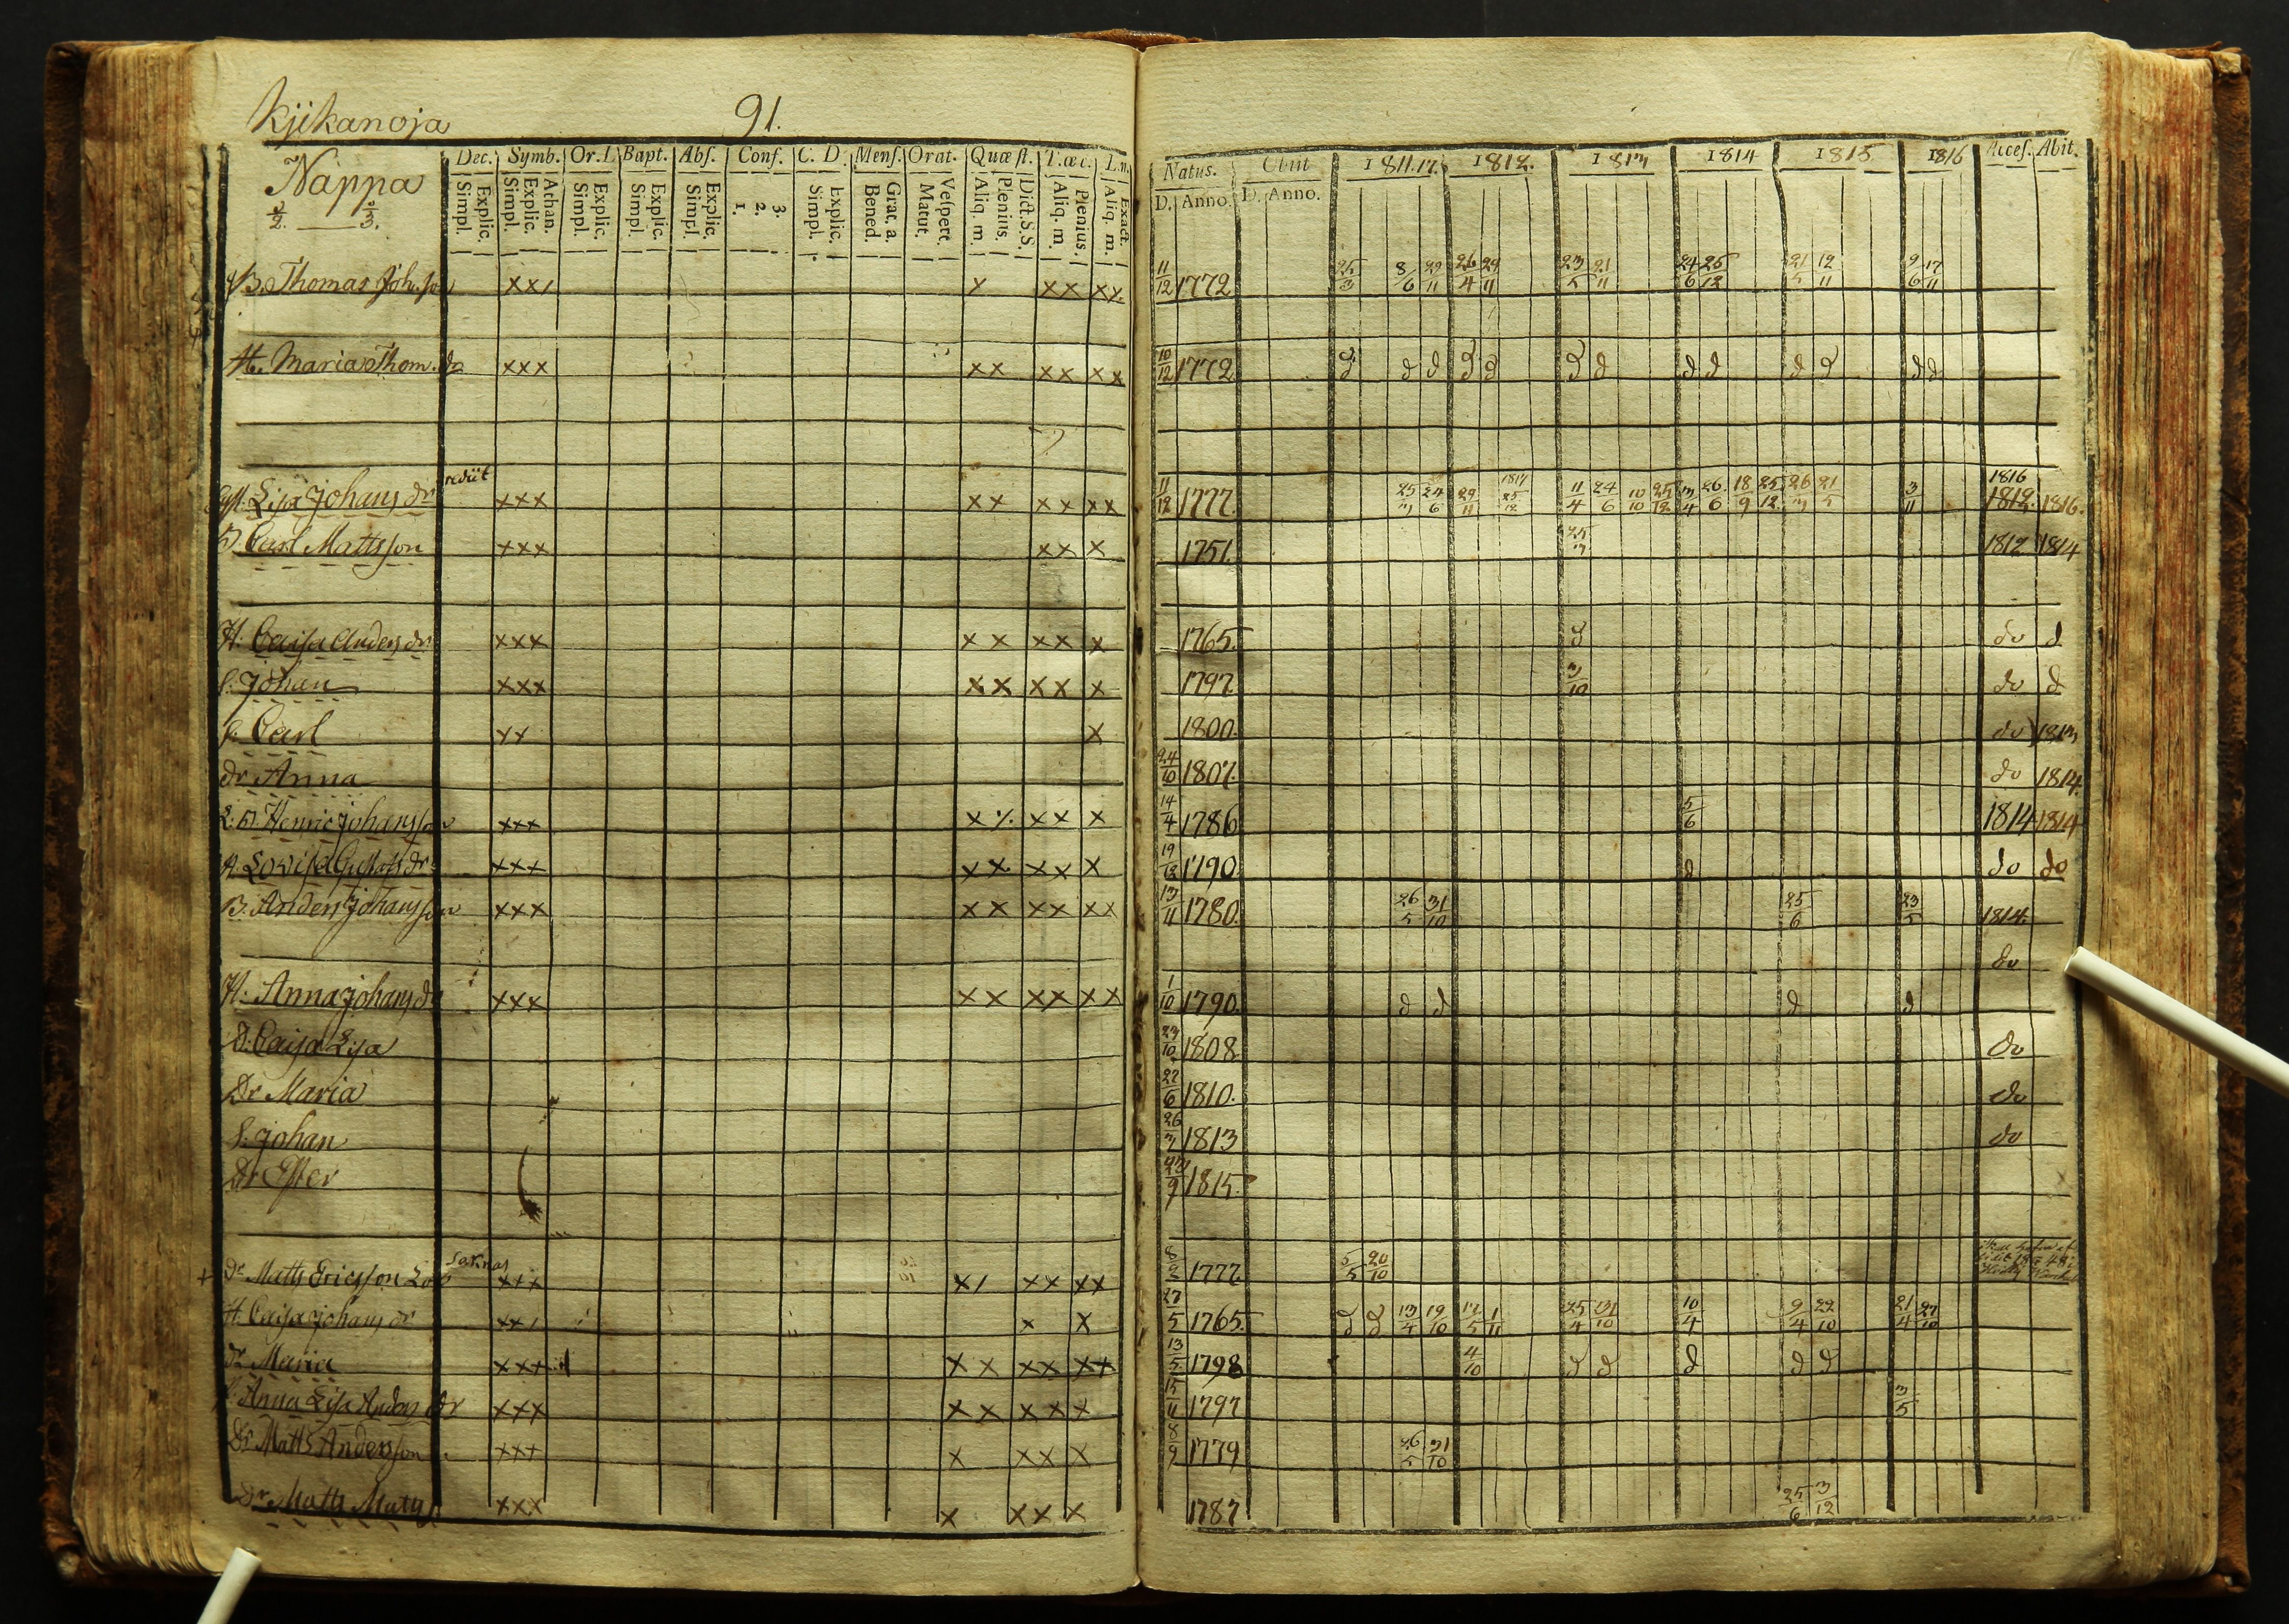 Kjikanoja 91.
Nappa
Dec. Symb. Or. D. Bapt. Abs. Conf. C. D. Mens. Orat. Quæst. T. œc. L.n.
Explic. Simpl. Athan. Explic. Simpl. Explic. Simpl. Explic. Simpl. Explic. Simpl. 3. 2. 1. Explic. Simpl. Grat. a. Bened. Vespert. Matut. Dict. S.S. Plenius. Aliq. m. Plenius. Aliq. m. Exact. Aliq. m.
Natus. Obiit 1811.17. 1812. 1813 1814 1815 1816 Acces. Abit.
D. Anno. D. Anno.
B. Thomas Johsson xx/ x xx xx 11/12 1772 25/3 8/6 29/11 26/4 29/11 23/5 21/11 24/6 25/12 21/5 12/11 9/6 17/11
H. Maria Thom. dr xxx xx xx xx 10/12 1772 d d d d d d d d d d d d d
Lisa Johans dr rediit xxx xx xx xx 11/12 1777. 25/3 24/6 29/11 1817 25/12 11/4 24/6 10/10 25/12 3/4 26/6 18/9 25/12 26/3 21/5 3/11 1816 1812. 1816.
B. Carl Mattsson xxx xx x 1751. 25/3 1812 1814
H. Caisa Anders dr xxx xx xx x 1765. d do d
S. Johan xxx xx xx x 1797 3/10 do d
S. Carl xx x 1800. do 1813
dr Anna 24/10 1807. do 1814.
L. B. Henric Johansson xxx x ·/. xx x 14/4 1786 5/6 1814 1814
H. Lovisa Gustafs dr xxx xx xx x 19/12 1790 d do do
B. Anders Johansson xxx xx xx xx 13/11 1780. 26/5 31/10 25/6 23/5 1814.
do
H. Anna Johans dr xxx xx xx xx 1/10 1790. d d d d
D. Caisa Lisa 23/10 1808 do
Dr Maria 22/6 1810. do
S. Johan 26/3 1813 do
Dr Ester 1815.
Dr Matts Ericsson xxx x/ xx xx 1777 5/5 20/10
H. Caisa Johans dr xx/ x x 27/5 1765. d d 13/4 19/10 1/11 25/4 31/10 10/4 9/4 22/10 21/4 27/10
dr Maria xxx xx xx xx 13/5 1798 4/10 d d d d d
Anna Lisa Anders dr xxx xx xx x 15/11 1797 3/5
Dr Matts Andersson xxx x xx x 8/9 1779 26/5 31/10
Dr Matts Matts xxx x xx x 1787 25/6 3/12